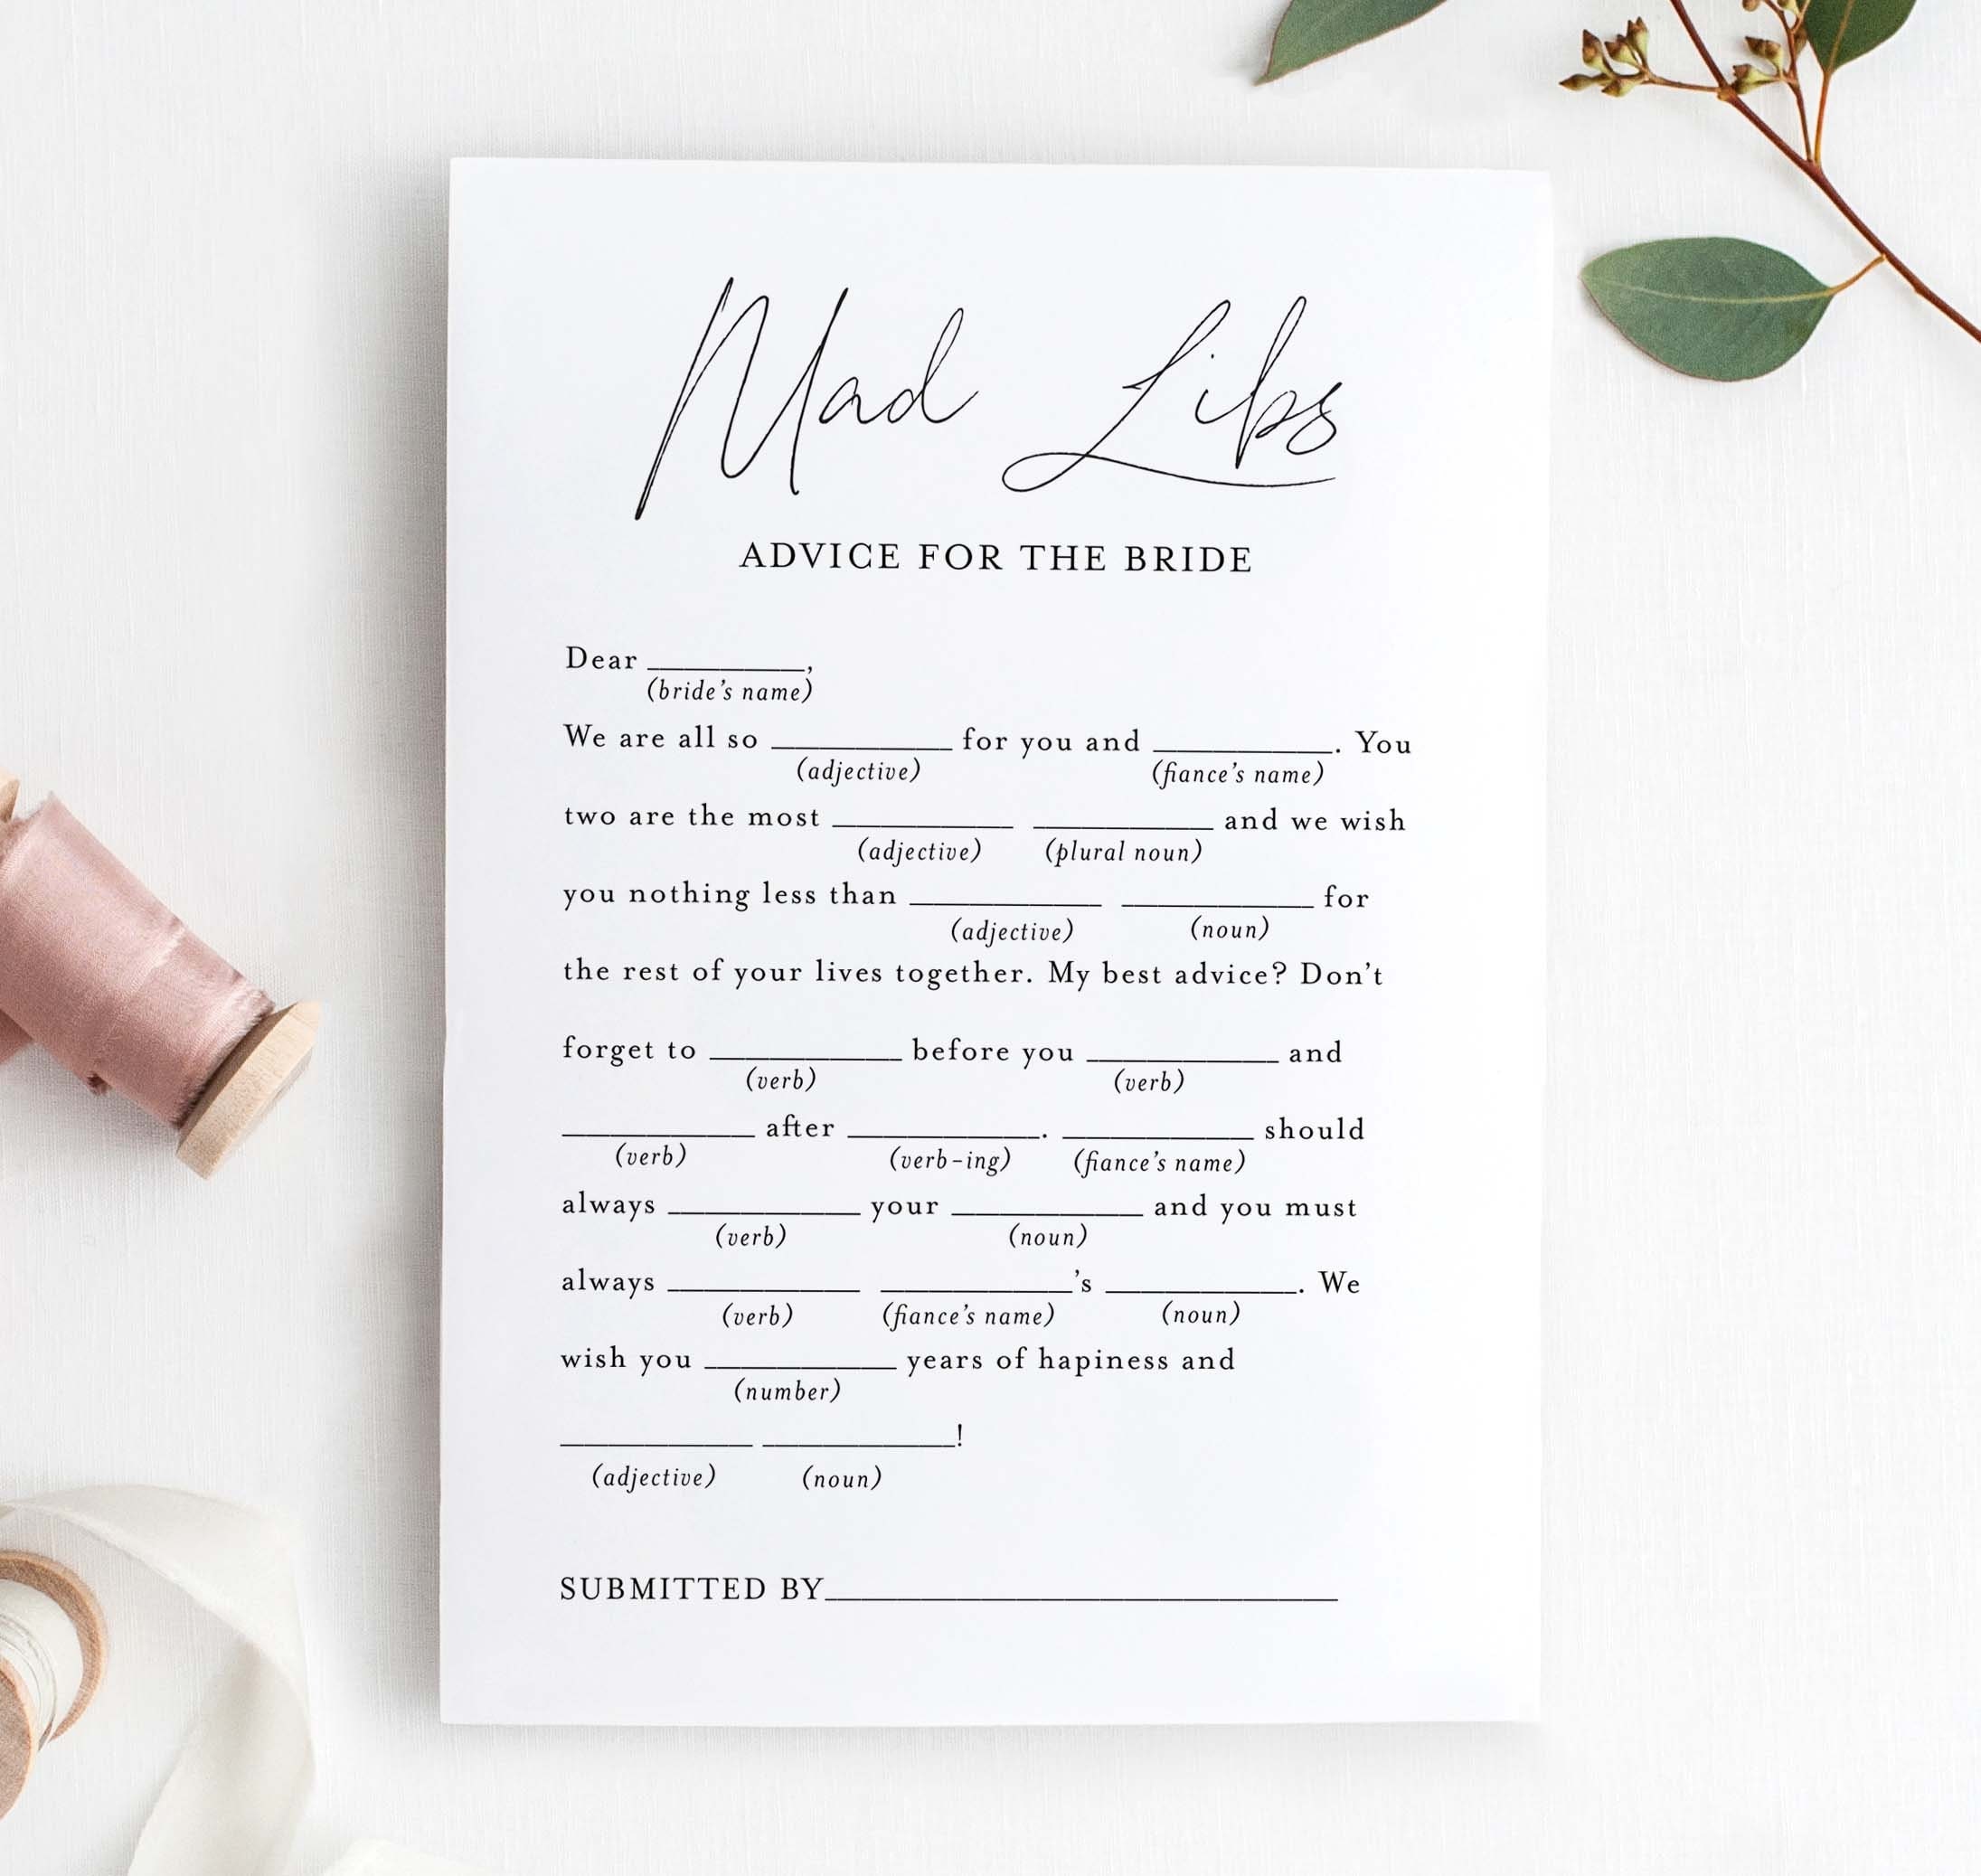 Mad Libs
ADVICE FOR THE BRIDE
Dear __________,
(bride's name)
We are all so __________ for you and __________. You
(adjective) (fiance's name)
two are the most __________ __________ and we wish
(adjective) (plural noun)
you nothing less than __________ __________ for
(adjective) (noun)
the rest of your lives together. My best advice? Don't
forget to __________ before you __________ and
(verb) (verb)
__________ after __________. __________ should
(verb) (verb-ing) (fiance's name)
always __________ your __________ and you must
(verb) (noun)
always __________ __________'s __________. We
(verb) (fiance's name) (noun)
wish you __________ years of hapiness and
(number)
__________ __________!
(adjective) (noun)
SUBMITTED BY______________________